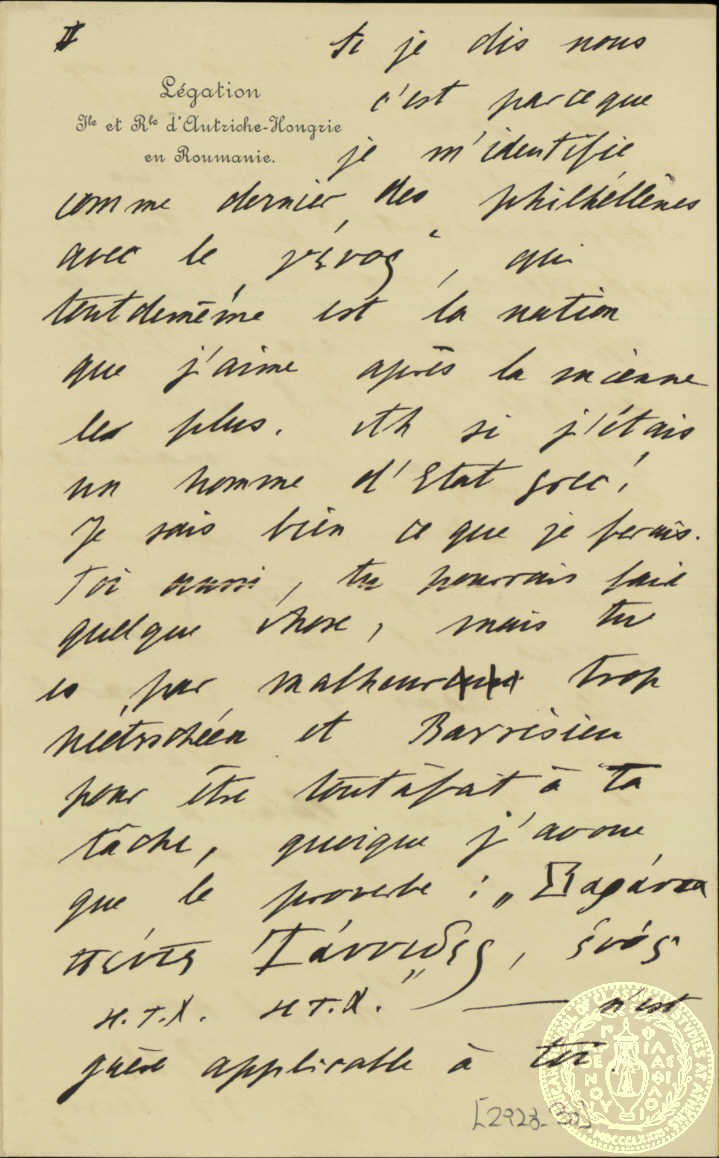 II
Si je dis nous
Légation
Ile et Rle d'Autriche-Hongrie
en Roumanie.
c'est parceque
je m'identifie
comme dernier des philhéllènes
avec le „γένος“, qui
toutdemême est la nation
que j'aime après la mienne
le plus. Ah si j'étais
un homme d'Etat grec!
Je sais bien ce que je ferais.
Toi aussi, tu pourrais faire
quelque chose, mais tu
es par malheur trop
niétzschéen et Barrésien
pour être toutàfait à ta
tâche, quoique j'avoue
que le proverbe: „Σαράντα
πέντε Γιάννιδες, ἑνός
κ.τ.λ. κ.τ.λ.“ — n'est
guère applicable à toi.
[2923-